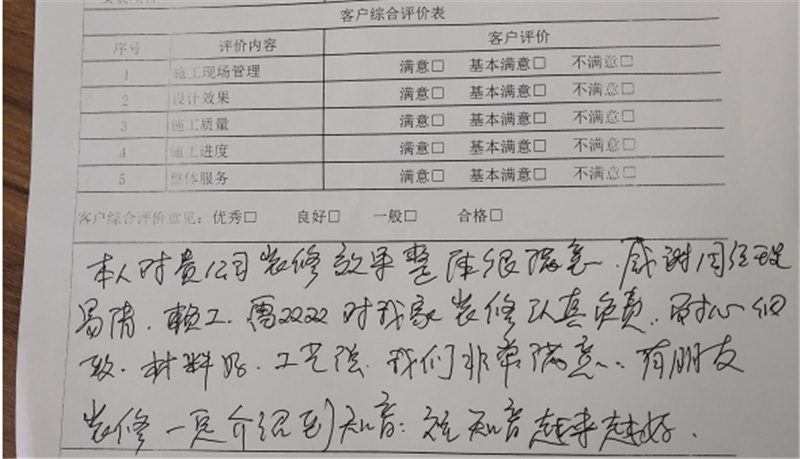 客户综合评价表
序号 评价内容 客户评价
1 施工现场管理 满意□ 基本满意□ 不满意□
2 设计效果 满意□ 基本满意□ 不满意□
3 施工质量 满意□ 基本满意□ 不满意□
4 施工进度 满意□ 基本满意□ 不满意□
5 整体服务 满意□ 基本满意□ 不满意□
客户综合评价意见：优秀□ 良好□ 一般□ 合格□
本人对贵公司装修效果整体很满意、感谢周经理
易倩、赖工、对我家装修认真负责、耐心细
致、材料好、工艺强、我们非常满意、有朋友
装修一定介绍到知音：祝知音越来越好.